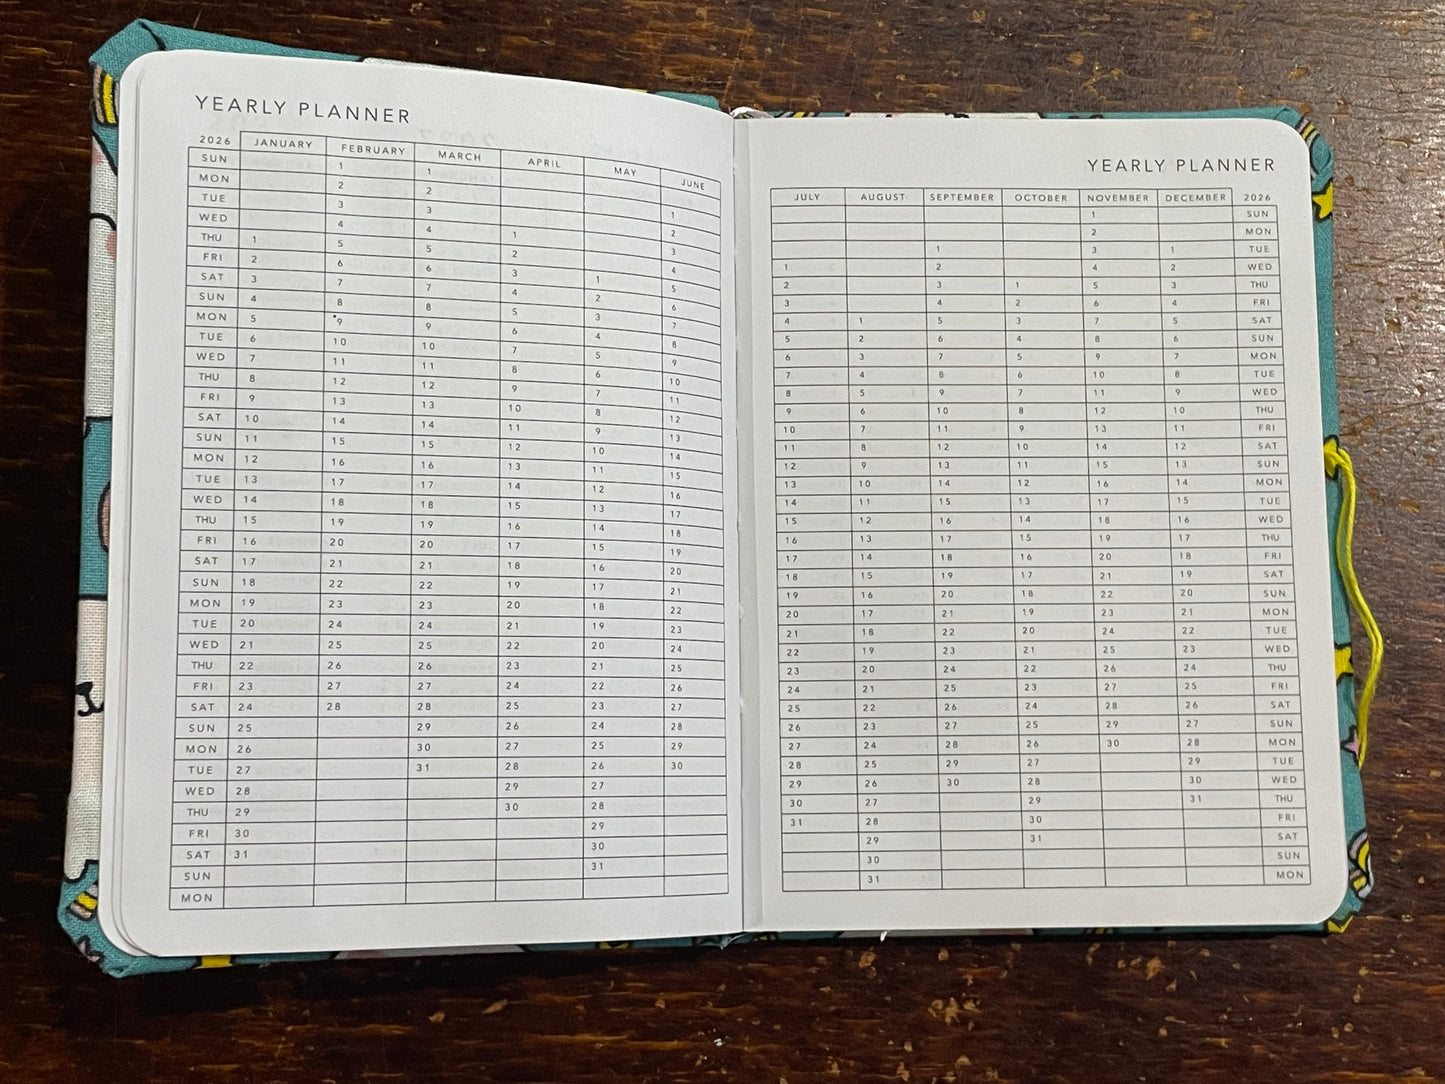 YEARLY PLANNER
2026 JANUARY FEBRUARY MARCH APRIL MAY JUNE
SUN 1 1
MON 2 2 1
TUE 3 3 2
WED 4 4 1 3
THU 1 5 5 2 4
FRI 2 6 6 3 1 5
SAT 3 7 7 4 2 6
SUN 4 8 8 5 3 7
MON 5 9 9 6 4 8
TUE 6 10 10 7 5 9
WED 7 11 11 8 6 10
THU 8 12 12 9 7 11
FRI 9 13 13 10 8 12
SAT 10 14 14 11 9 13
SUN 11 15 15 12 10 14
MON 12 16 16 13 11 15
TUE 13 17 17 14 12 16
WED 14 18 18 15 13 17
THU 15 19 19 16 14 18
FRI 16 20 20 17 15 19
SAT 17 21 21 18 16 20
SUN 18 22 22 19 17 21
MON 19 23 23 20 18 22
TUE 20 24 24 21 19 23
WED 21 25 25 22 20 24
THU 22 26 26 23 21 25
FRI 23 27 27 24 22 26
SAT 24 28 28 25 23 27
SUN 25 29 26 24 28
MON 26 30 27 25 29
TUE 27 31 28 26 30
WED 28 29 27
THU 29 30 28
FRI 30 29
SAT 31 30
SUN 31
MON
YEARLY PLANNER
JULY AUGUST SEPTEMBER OCTOBER NOVEMBER DECEMBER 2026
1 SUN
2 MON
1 3 1 TUE
1 2 4 2 WED
2 3 1 5 3 THU
3 4 2 6 4 FRI
4 1 5 3 7 5 SAT
5 2 6 4 8 6 SUN
6 3 7 5 9 7 MON
7 4 8 6 10 8 TUE
8 5 9 7 11 9 WED
9 6 10 8 12 10 THU
10 7 11 9 13 11 FRI
11 8 12 10 14 12 SAT
12 9 13 11 15 13 SUN
13 10 14 12 16 14 MON
14 11 15 13 17 15 TUE
15 12 16 14 18 16 WED
16 13 17 15 19 17 THU
17 14 18 16 20 18 FRI
18 15 19 17 21 19 SAT
19 16 20 18 22 20 SUN
20 17 21 19 23 21 MON
21 18 22 20 24 22 TUE
22 19 23 21 25 23 WED
23 20 24 22 26 24 THU
24 21 25 23 27 25 FRI
25 22 26 24 28 26 SAT
26 23 27 25 29 27 SUN
27 24 28 26 30 28 MON
28 25 29 27 29 TUE
29 26 30 28 30 WED
30 27 29 31 THU
31 28 30 FRI
29 31 SAT
30 SUN
31 MON